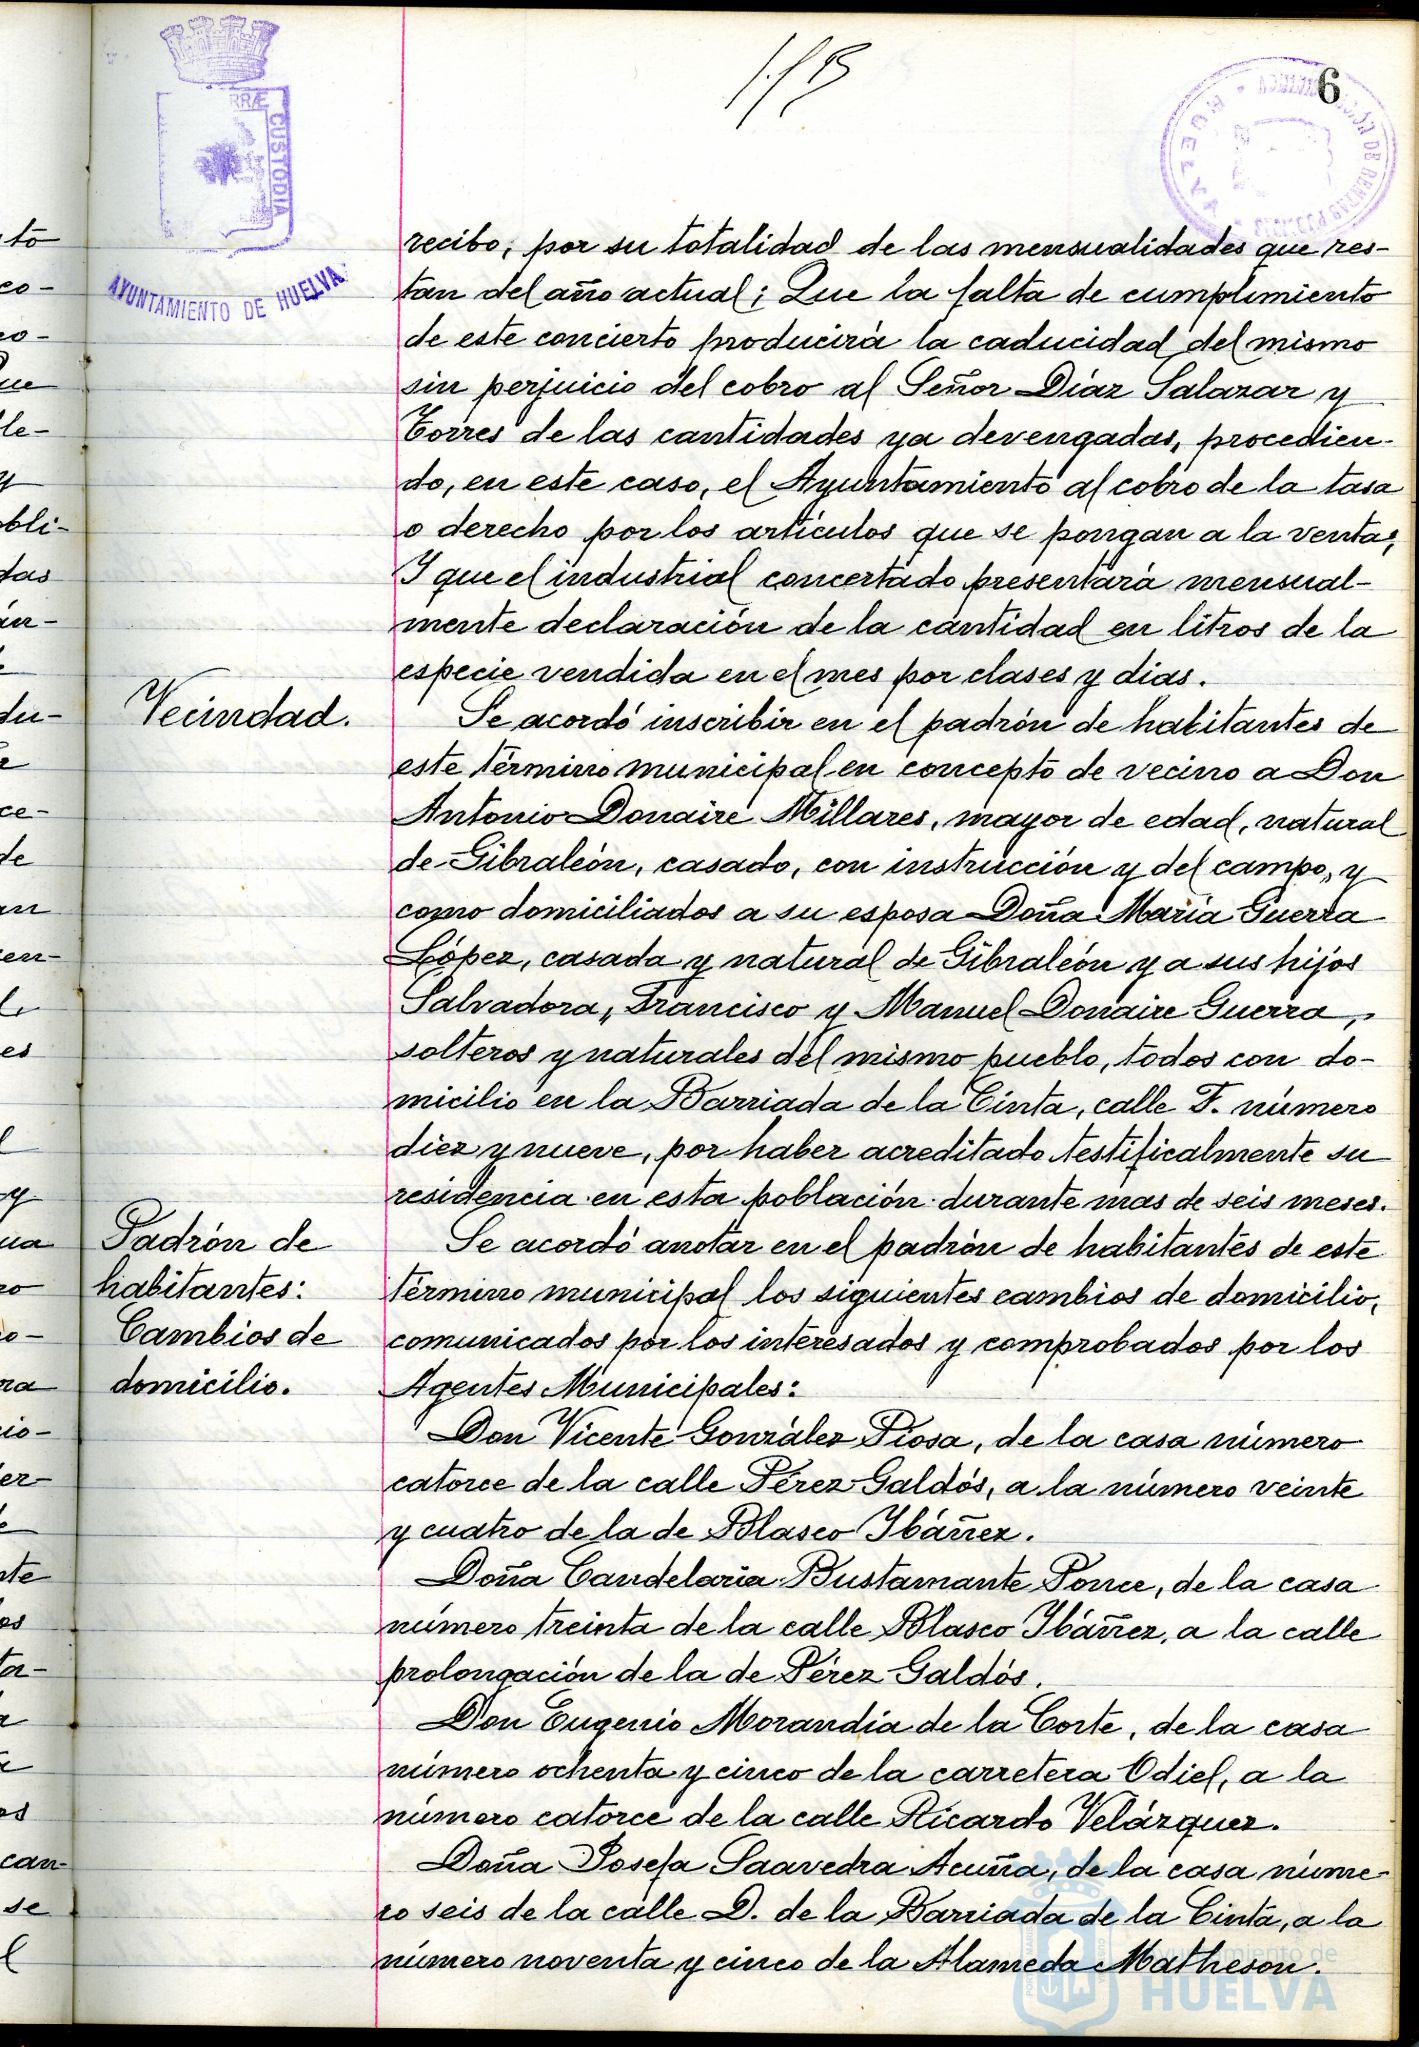 6
RRÆ CUSTODIA
AYUNTAMIENTO DE HUELVA
HUELVA
recibo, por su totalidad de las mensualidades que res-
tan del año actual; Que la falta de cumplimiento
de este concierto producirá la caducidad del mismo
sin perjuicio del cobro al Señor Díaz Salazar y
Torres de las cantidades ya devengadas, procedien-
do, en este caso, el Ayuntamiento al cobro de la tasa
o derecho por los artículos que se pongan a la venta;
Y que el industrial concertado presentará mensual-
mente declaración de la cantidad en litros de la
especie vendida en el mes por clases y dias.
Vecindad.
Se acordó inscribir en el padrón de habitantes de
este término municipal en concepto de vecino a Don
Antonio Donaire Millares, mayor de edad, natural
de Gibraleón, casado, con instrucción y del campo, y
como domiciliados a su esposa Doña María Guerra
López, casada y natural de Gibraleón y a sus hijos
Salvadora, Francisco y Manuel Donaire Guerra,
solteros y naturales del mismo pueblo, todos con do-
micilio en la Barriada de la Cinta, calle F. número
diez y nueve, por haber acreditado testificalmente su
residencia en esta población durante mas de seis meses.
Padrón de
habitantes:
Cambios de
domicilio.
Se acordó anotar en el padrón de habitantes de este
término municipal los siguientes cambios de domicilio,
comunicados por los interesados y comprobados por los
Agentes Municipales:
Don Vicente González Piosa, de la casa número
catorce de la calle Pérez Galdós, a la número veinte
y cuatro de la de Blasco Ibáñez.
Doña Candelaria Bustamante Ponce, de la casa
número treinta de la calle Blasco Ibáñez, a la calle
prolongación de la de Pérez Galdós.
Don Eugenio Morandia de la Corte, de la casa
número ochenta y cinco de la carretera Odiel, a la
número catorce de la calle Ricardo Velázquez.
Doña Josefa Saavedra Acuña, de la casa núme-
ro seis de la calle D. de la Barriada de la Cinta, a la
número noventa y cinco de la Alameda Matheson.
Ayuntamiento de
HUELVA